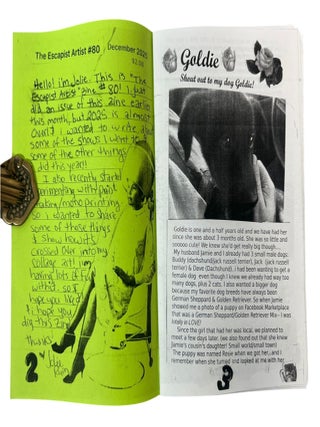 The Escapist Artist #80
December 2025
$2.00
Hello! I'm Jolie. This is "The
Escapist Artist" zine #80! I just
did an issue of this zine earlier
this month, but 2025 is almost
over! I wanted to write about
some of the shows I went to &
some of the other things I
did this year!
I also recently started
experimenting with print
making/mono printing
so I wanted to share
some of those things
& show how it's
crossed over into my
collage art! I'm
having lots of fun
with it. so I
hope you like it
& I hope you
dig this zine!
Thanks!
2
Goldie
Shout out to my dog Goldie!
Goldie is one and a half years old and we have had her
since she was about 3 months old. She was so little and
sooooo cute! We knew she'd get really big though...
My husband Jamie and I already had 3 small dogs:
Buddy (dachshund/jack russel terrier), Jack (jack russel
terrier) & Dave (Dachshund). I had been wanting to get a
female dog even though I knew we already had way too
many dogs, plus 2 cats. I also wanted a bigger dog
because my favorite dog breeds have always been
German Sheppard & Golden Retriever. So when Jamie
showed me a photo of a puppy on Facebook Marketplace
that was a German Sheppard/Golden Retriever Mix-- I was
totally in LOVE!
Since the girl that had her was local, we planned to
meet a few days later, (we also found out that she knew
Jamie's cousin's daughter! Small world/small town)
The puppy was named Rosie when we got her, and I
remember when she turned and looked at me with her
3